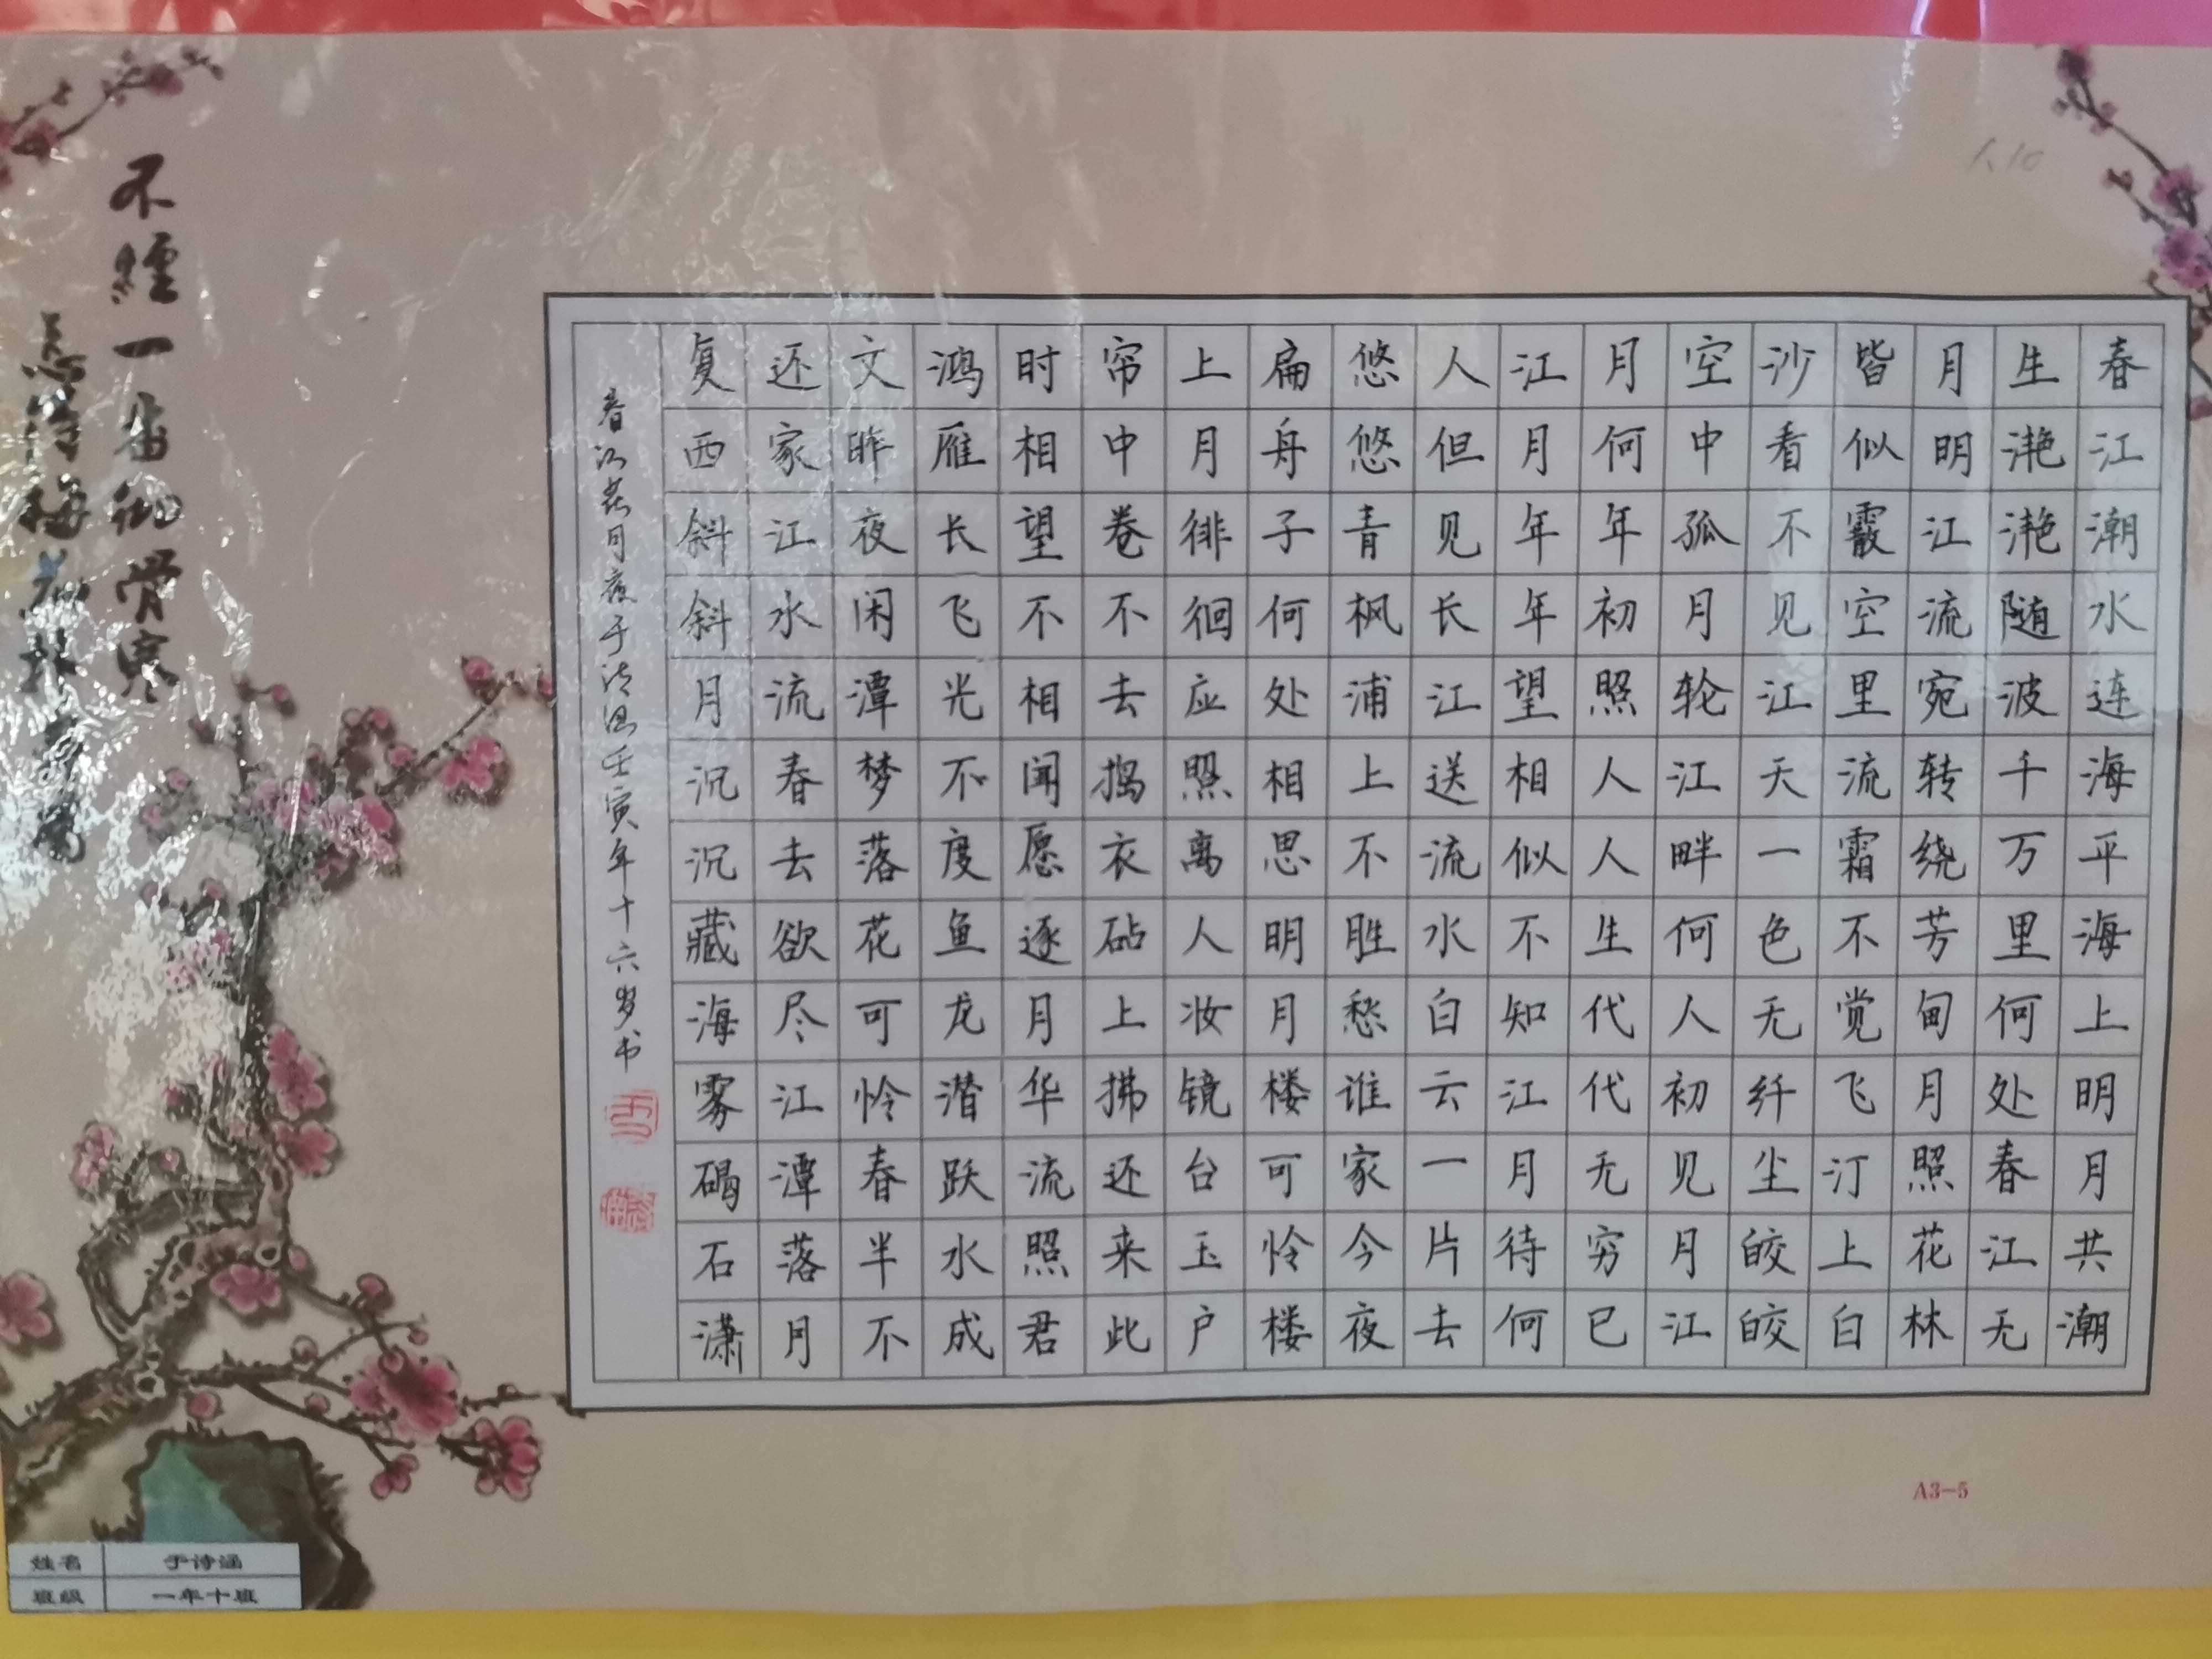 春江潮水连海平海上明月共潮
生滟滟随波千万里何处春江无
月明江流宛转绕芳甸月照花林
皆似霰空里流霜不觉飞汀上白
沙看不见江天一色无纤尘皎皎
空中孤月轮江畔何人初见月江
月何年初照人人生代代无穷已
江月年年望相似不知江月待何
人但见长江送流水白云一片去
悠悠青枫浦上不胜愁谁家今夜
扁舟子何处相思明月楼可怜楼
上月徘徊应照离人妆镜台玉户
帘中卷不去捣衣砧上拂还来此
时相望不相闻愿逐月华流照君
鸿雁长飞光不度鱼龙潜跃水成
文昨夜闲潭梦落花可怜春半不
还家江水流春去欲尽江潭落月
复西斜斜月沉沉藏海雾碣石潇
春江花月夜于诗涵壬寅年十六岁书
不經一番彻骨寒
怎得梅花扑
A3-5
姓名 于诗涵
班级 一年十班